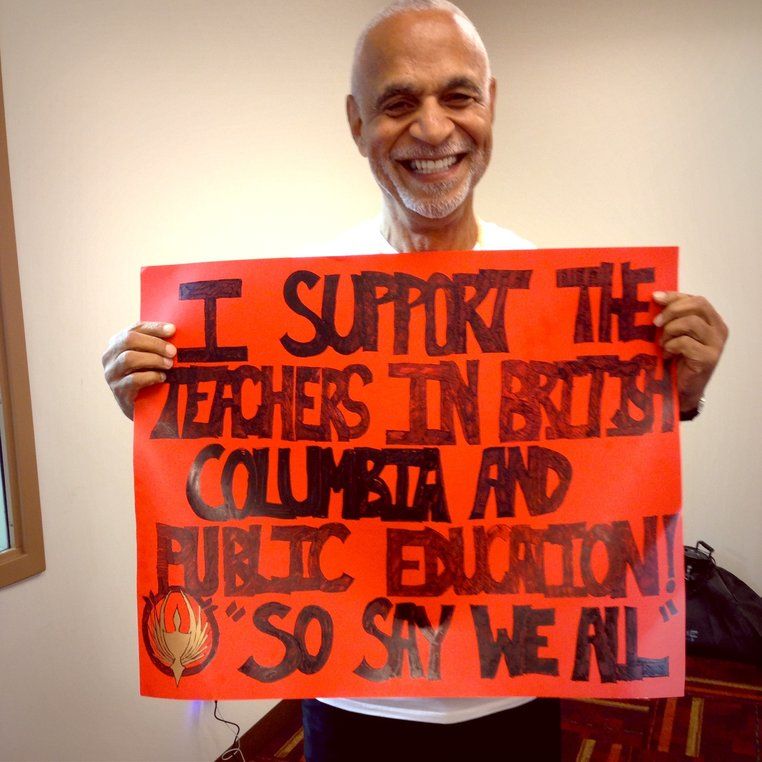 I SUPPORT THE
TEACHERS IN BRITISH
COLUMBIA AND
PUBLIC EDUCATION!
"SO SAY WE ALL"